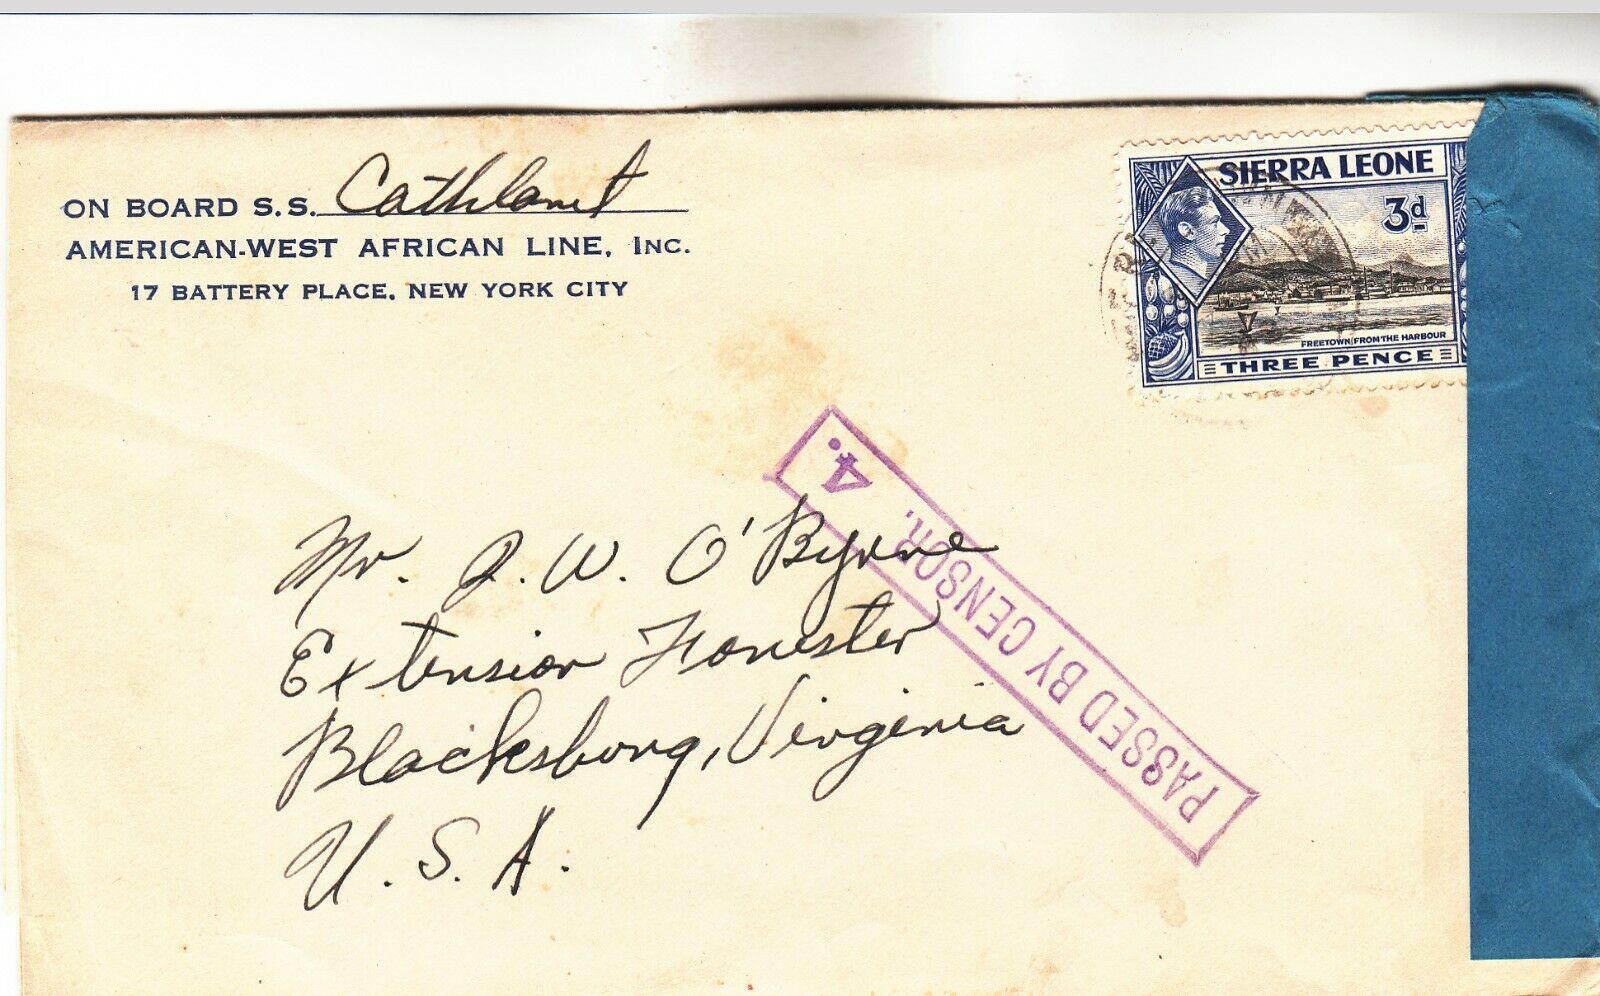 ON BOARD S.S. Cathlamet
AMERICAN-WEST AFRICAN LINE, INC.
17 BATTERY PLACE, NEW YORK CITY
SIERRA LEONE
3d
FREETOWN FROM THE HARBOUR
THREE PENCE
4.
PASSED BY CENSOR.
Mr. J. W. O'Byrne
Extension Forester
Blacksburg, Virginia
U. S. A.